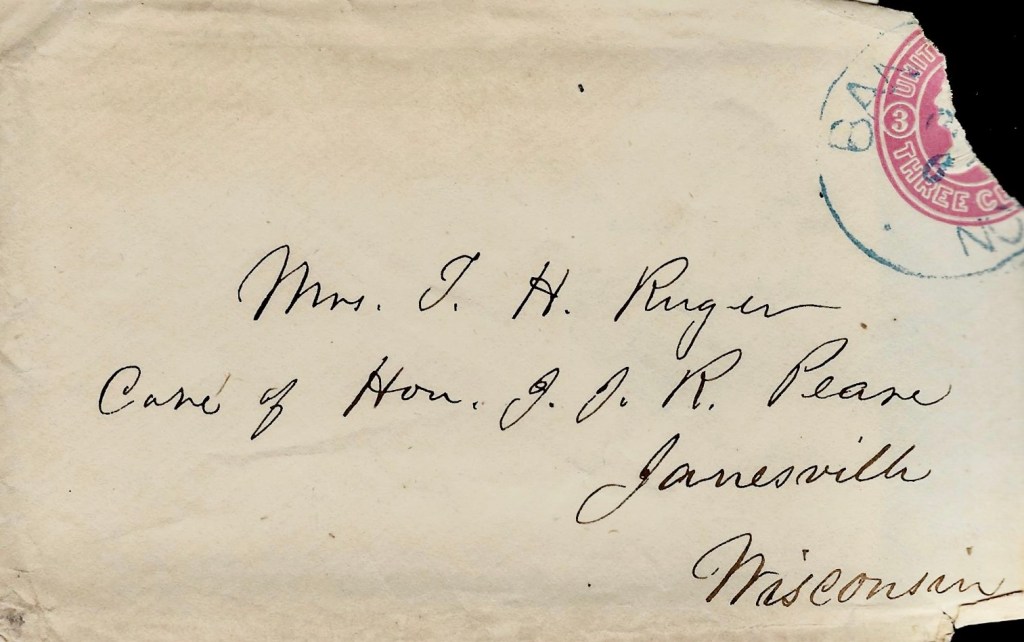 UNIT
3
THREE CE
Mrs. T. H. Ruger
Care of Hon. J. J. R. Pease
Janesville
Wisconsin